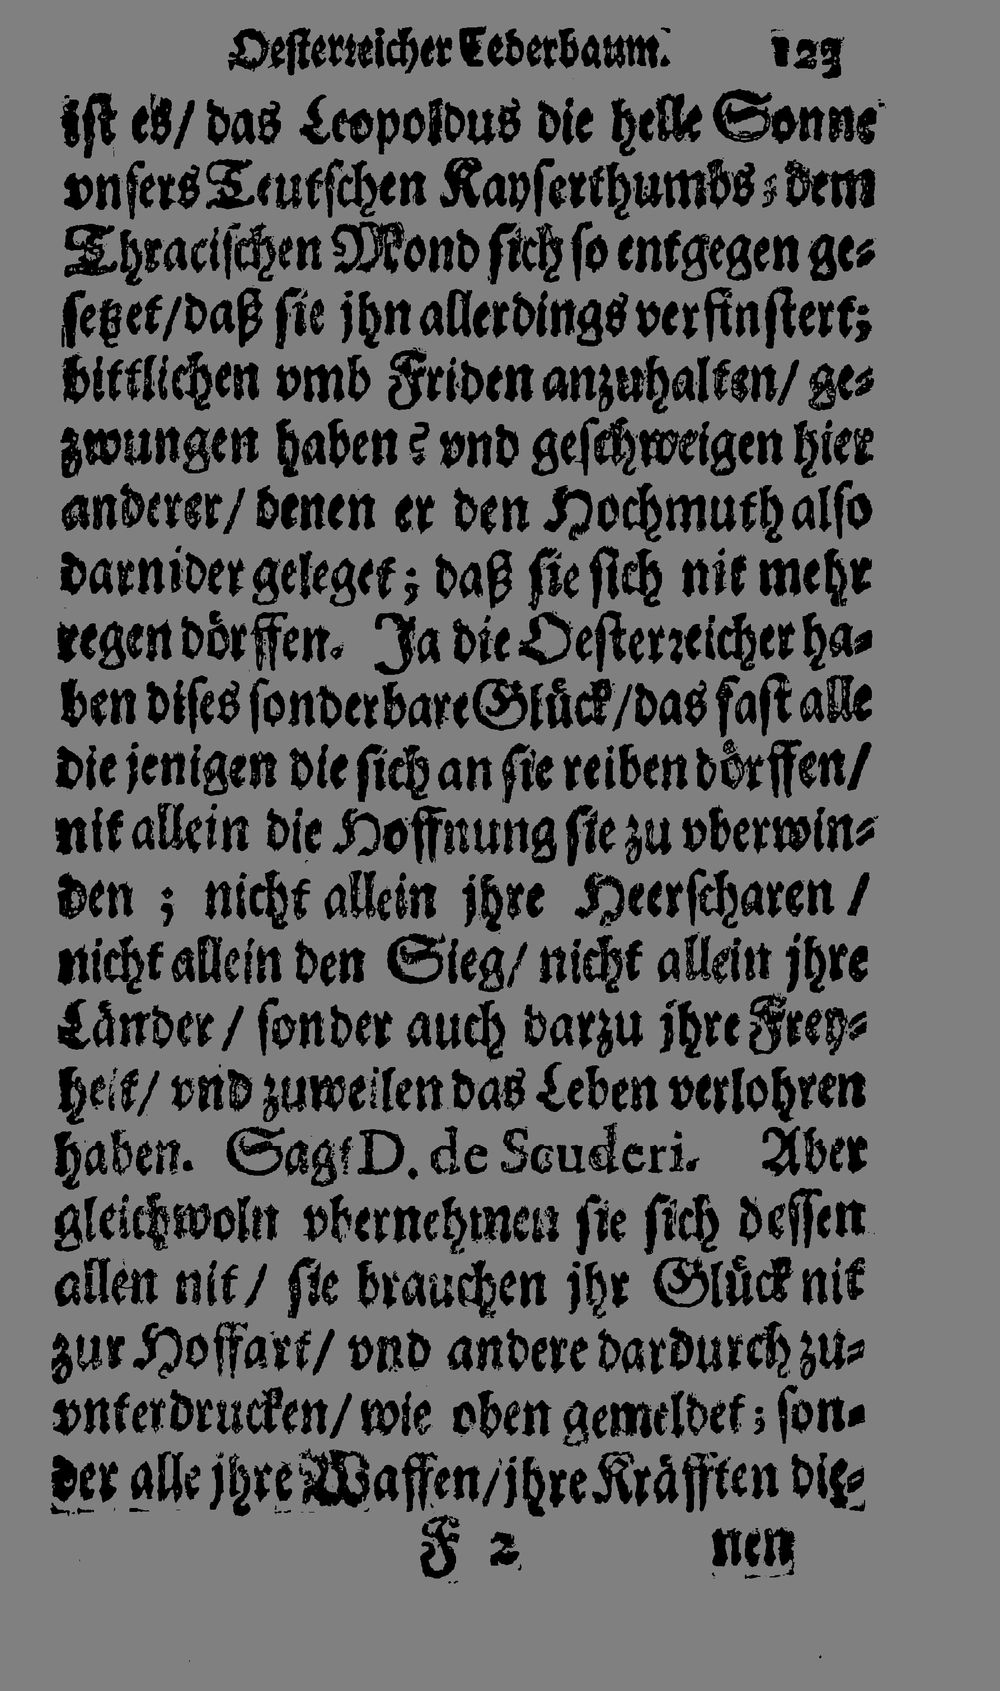 Oesterreicher Cederbaum. 123
ist es/ das Leopoldus die helle Sonne
vnsers Teutschen Kayserthumbs; dem
Thracischen Mond sich so entgegen ge-
setzet/ daß sie jhn allerdings verfinstert;
bittlichen vmb Friden anzuhalten/ ge-
zwungen haben? vnd geschweigen hier
anderer/ denen er den Hochmuth also
darnider geleget; daß sie sich nit mehr
regen dörffen. Ja die Oesterreicher ha-
ben dises sonderbare Glück/ das fast alle
die jenigen die sich an sie reiben dörffen/
nit allein die Hoffnung sie zu vberwin-
den ; nicht allein jhre Heerscharen /
nicht allein den Sieg/ nicht allein jhre
Länder / sonder auch darzu jhre Frey-
heit/ vnd zuweilen das Leben verlohren
haben. Sagt D. de Scuderi. Aber
gleichwoln vbernehmen sie sich dessen
allen nit / sie brauchen jhr Glück nit
zur Hoffart/ vnd andere dardurch zu-
vnterdrucken/ wie oben gemeldet; son-
der alle jhre Waffen/ jhre Kräfften die-
F 2 nen